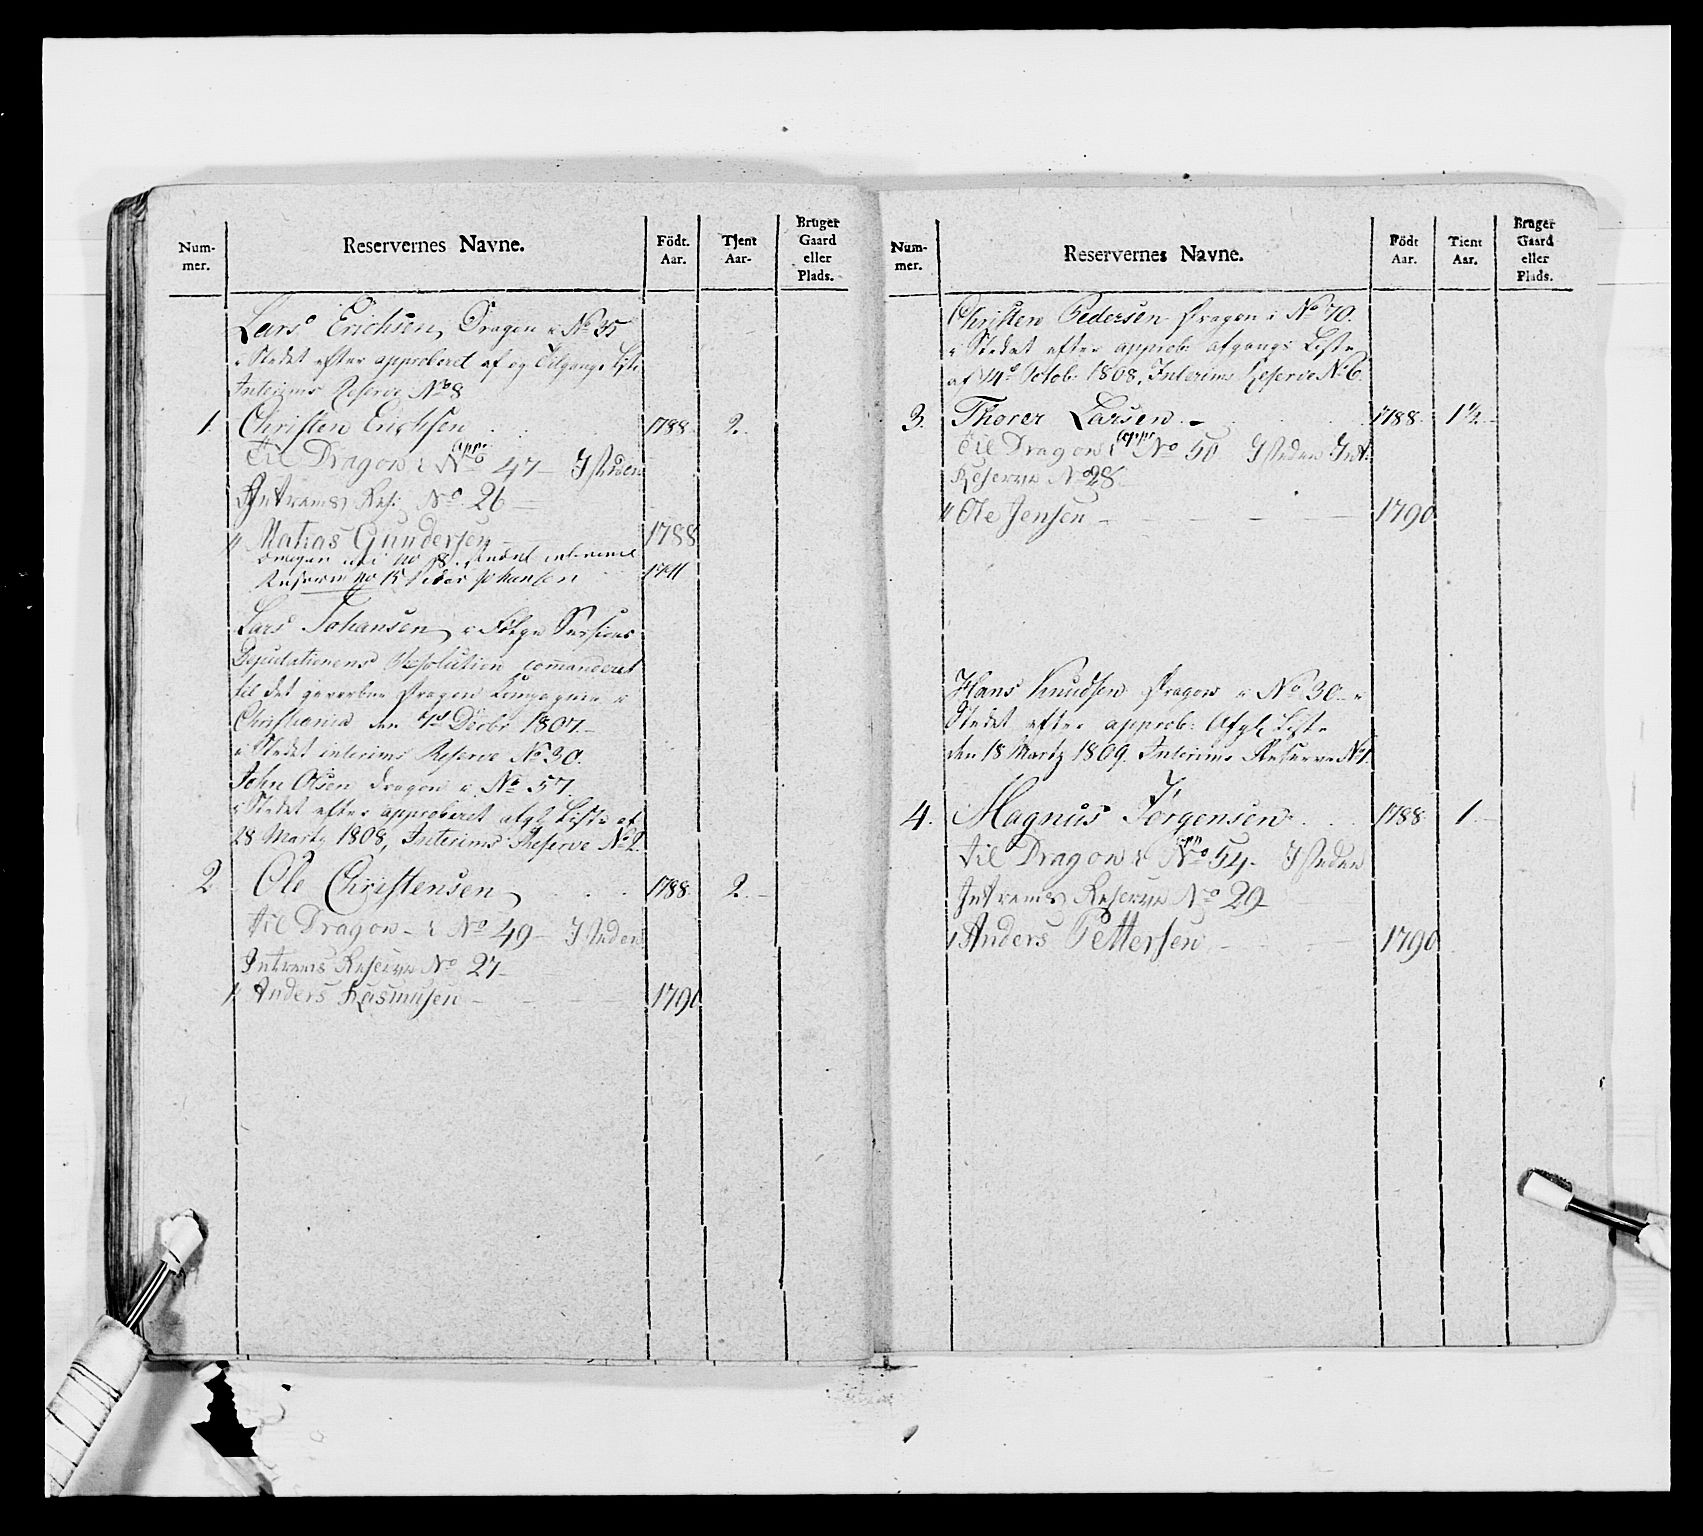 Num-
mer.
Reservernes Navne.
Födt.
Aar.
Tjent
Aar-
Bruger
Gaard
eller
Plads.
Lars Erichsen, Dragon i No 35
i Stedet efter approberet af og Tilgangs Liste
Interims Reserve No 8
1. Christen Erichsen 1788 2.
appr:
til Dragon i No 47 - I steden
Intrems Res: No 26
" Matias Gundersen 1788
Reserve no 15 Johansen
Lars Johansen, i Følge Sessions
Deputationens Resolution comanderet
til det gevorbne Dragon Compagnie i
Christiania den Decbr 1807.
i Stedet interims Reserve No 30.
John Olsen dragon i No 57
i Stedet efter approberet afg: Liste af
28 Martz 1808, Interims Reserve No 2.
2 Ole Christensen 1788 2.
til Dragon - i No 49 - I steden
Intrems Reserve No 27
" Anders Rasmusen 1790
Num-
mer.
Reservernes Navne.
Födt
Aar.
Tient
Aar.
Bruger
Gaard
eller
Plads.
Christen Pedersen Dragon i No 70.
i Stedet efter approb: afgangs Liste
af 14d Octob: 1808, Interims Reserve No 6.
3. Thorer Larsen 1788 1½
appr
til Dragon i No 50 I steden Int:
Reserve No 28
" Ole Jensen 1790
Hans Knudsen Dragon i No 30 i
Stedet efter approb: Afg: Liste
den 18 Martz 1809. Interims Reserve No 1.
4. Magnus Jørgensen 1788 1.
til Dragon i No 54 - I steden
Intrems Reserve No 29
" Anders Pettersen 1790